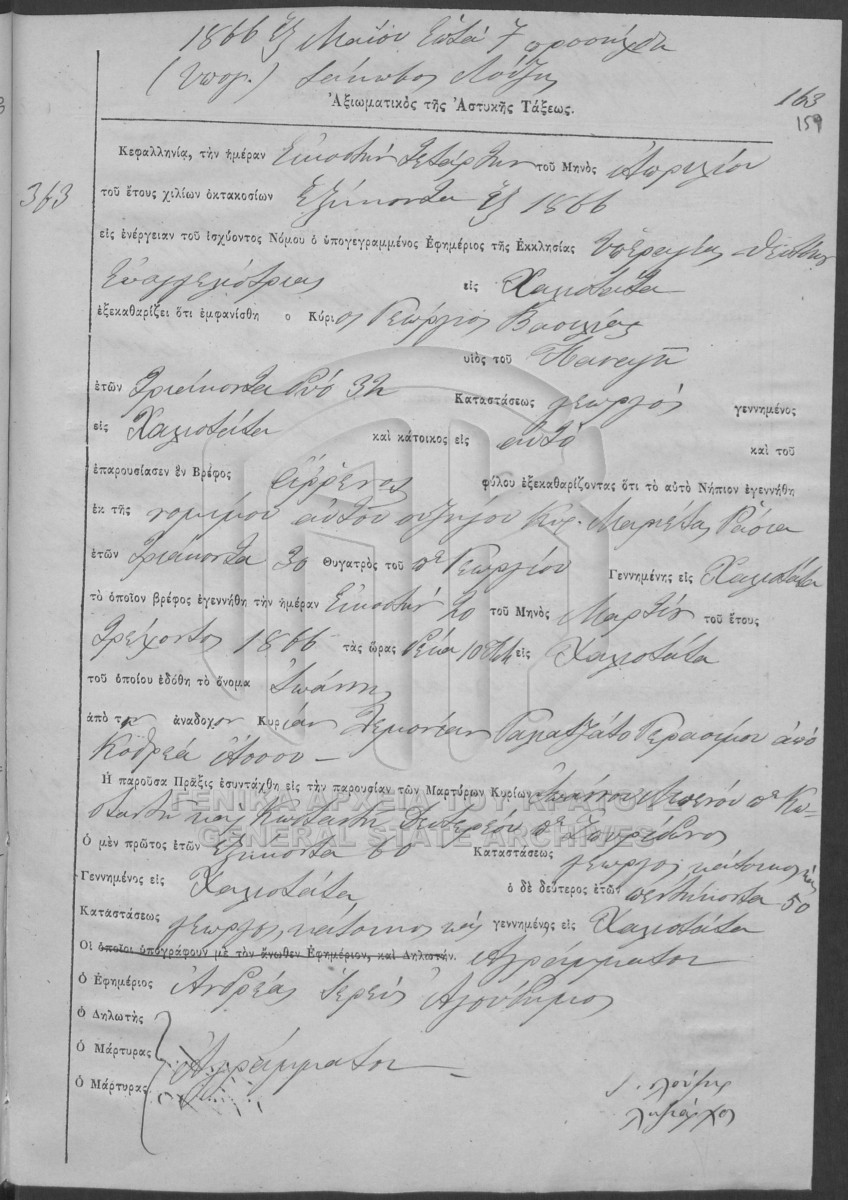 1866 ἓξ Μαΐου Ἑπτά 7 προσήχθη
(Ὑπογ.) Ἰάκωβος Λούζης
Ἀξιωματικὸς τῆς Ἀστυκῆς Τάξεως.
163
159
363
Κεφαλληνίᾳ, τὴν ἡμέραν Εἰκοστήν Τετάρτην τοῦ Μηνὸς Ἀπριλίου
τοῦ ἔτους χιλίων ὀκτακοσίων Ἑξήκοντα ἓξ 1866
εἰς ἐνέργειαν τοῦ ἰσχύοντος Νόμου ὁ ὑπογεγραμμένος Ἐφημέριος τῆς Ἐκκλησίας Ὑπεραγίας Θεοτόκου
Εὐαγγελιστρίας εἰς Χαλιοτάτα
ἐξεκαθαρίζει ὅτι ἐμφανίσθη ο Κύριος Γεώργιος Βασιλιάς
υἱὸς τοῦ Παναγῆ
ἐτῶν τριάκοντα δυό 32 Καταστάσεως γεωργός γεννημένος
εἰς Χαλιοτάτα καὶ κάτοικος εἰς αὐτό καὶ τοῦ
ἐπαρουσίασεν ἓν Βρέφος ἄῤῥενος φύλου ἐξεκαθαρίζοντας ὅτι τὸ αὐτὸ Νήπιον ἐγεννήθη
ἐκ τῆς νομίμου αὐτοῦ συζύγου Κυρ. Μαριέτας
ἐτῶν τριάκοντα 30 Θυγατρὸς τοῦ πτε Γεωργίου Γεννημένης εἰς Χαλιοτάτα
τὸ ὁποῖον βρέφος ἐγεννήθη τὴν ἡμέραν Εἰκοστήν 20 τοῦ Μηνὸς Μαρτίου τοῦ ἔτους
τρέχοντος 1866 τὰς ὥρας δέκα 10 εἰς Χαλιοτάτα
τοῦ ὁποίου ἐδόθη τὸ ὄνομα Ἰωάννης
ἀπὸ τὴν ἀνάδοχον Κυρίαν Γαλατζάτο Γερασίμου ἀπό
Κοθρέα Ἀσσου —
Ἡ παροῦσα Πρᾶξις ἐσυντάχθη εἰς τὴν παρουσίαν τῶν Μαρτύρων Κυρίων Ἰωάννου πτε Κω-
σταντή καὶ Κωσταντή Δευτερέου πτε Σπυρίδωνος
Ὁ μὲν πρῶτος ἐτῶν ἑξήκοντα 60 Καταστάσεως γεωργός κάτοικος καὶ
Γεννημένος εἰς Χαλιοτάτα, ὁ δὲ δεύτερος ἐτῶν πεντήκοντα 50
Καταστάσεως γεωργός κάτοικος καὶ γεννημένος εἰς Χαλιοτάτα
Οἱ ὁποῖοι ὑπογράφουν μὲ τὸν ἄνωθεν Ἐφημέριον, καὶ Δηλωτήν. Ἀγράμματοι
ὁ Ἐφημέριος Ἀνδρέας Ἱερεύς
ὁ Δηλωτὴς
ὁ Μάρτυρας Ἀγράμματοι —
ὁ Μάρτυρας
Ι. Λούζης
Ληξίαρχος
ΓΕΝΙΚΑ ΑΡΧΕΙΑ ΤΟΥ ΚΡΑΤΟΥΣ
GENERAL STATE ARCHIVES